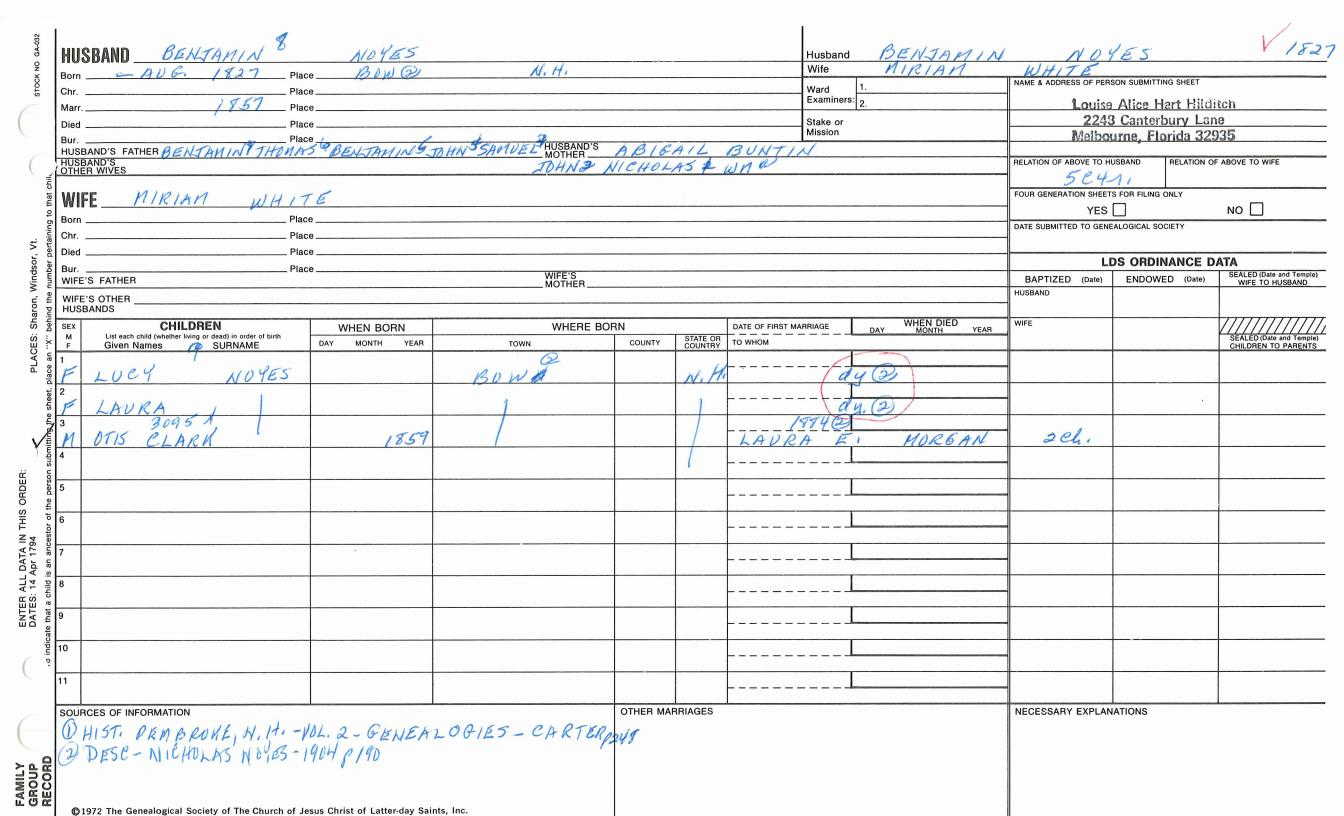 STOCK NO GA-032
HUSBAND BENJAMIN 8 NOYES
Born — AUG. 1827 Place BOW ② N.H.
Chr. Place
Marr. 1857 Place
Died Place
Bur. Place
HUSBAND'S FATHER BENJAMIN 7 THOMAS 6 BENJAMIN 5 JOHN 4 SAMUEL 3 HUSBAND'S MOTHER ABIGAIL BUNTIN
HUSBAND'S OTHER WIVES JOHN 2 NICHOLAS 1 WM
Husband BENJAMIN NOYES 1827
Wife MIRIAM WHITE
Ward Examiners: 1.
2.
Stake or Mission
NAME & ADDRESS OF PERSON SUBMITTING SHEET
Louise Alice Hart Hilditch
2243 Canterbury Lane
Melbourne, Florida 32935
RELATION OF ABOVE TO HUSBAND RELATION OF ABOVE TO WIFE
5C4r.
FOUR GENERATION SHEETS FOR FILING ONLY
YES NO
DATE SUBMITTED TO GENEALOGICAL SOCIETY
WIFE MIRIAM WHITE
Born Place
Chr. Place
Died Place
Bur. Place
WIFE'S FATHER WIFE'S MOTHER
WIFE'S OTHER HUSBANDS
LDS ORDINANCE DATA
BAPTIZED (Date) ENDOWED (Date) SEALED (Date and Temple) WIFE TO HUSBAND
HUSBAND
WIFE
SEALED (Date and Temple) CHILDREN TO PARENTS
SEX M F
CHILDREN
List each child (whether living or dead) in order of birth
Given Names 9 SURNAME
WHEN BORN
DAY MONTH YEAR
WHERE BORN
TOWN COUNTY STATE OR COUNTRY
DATE OF FIRST MARRIAGE
TO WHOM
WHEN DIED
DAY MONTH YEAR
1 F LUCY NOYES BOW ② N.H. dy ②
2 F LAURA dy. ②
3 M 3095 X OTIS CLARK 1859 1884 ② LAURA E. MORGAN 2 Ch.
4
5
6
7
8
9
10
11
SOURCES OF INFORMATION
① HIST. PEMBROKE, N.H. - VOL. 2 - GENEALOGIES - CARTER
② DESC - NICHOLAS NOYES - 1904 p 190
OTHER MARRIAGES
NECESSARY EXPLANATIONS
©1972 The Genealogical Society of The Church of Jesus Christ of Latter-day Saints, Inc.
FAMILY GROUP RECORD
ENTER ALL DATA IN THIS ORDER:
DATES: 14 Apr 1794
PLACES: Sharon, Windsor, Vt.
indicate that a child is an ancestor of the person submitting the sheet, place an "X" behind the number pertaining to that child.